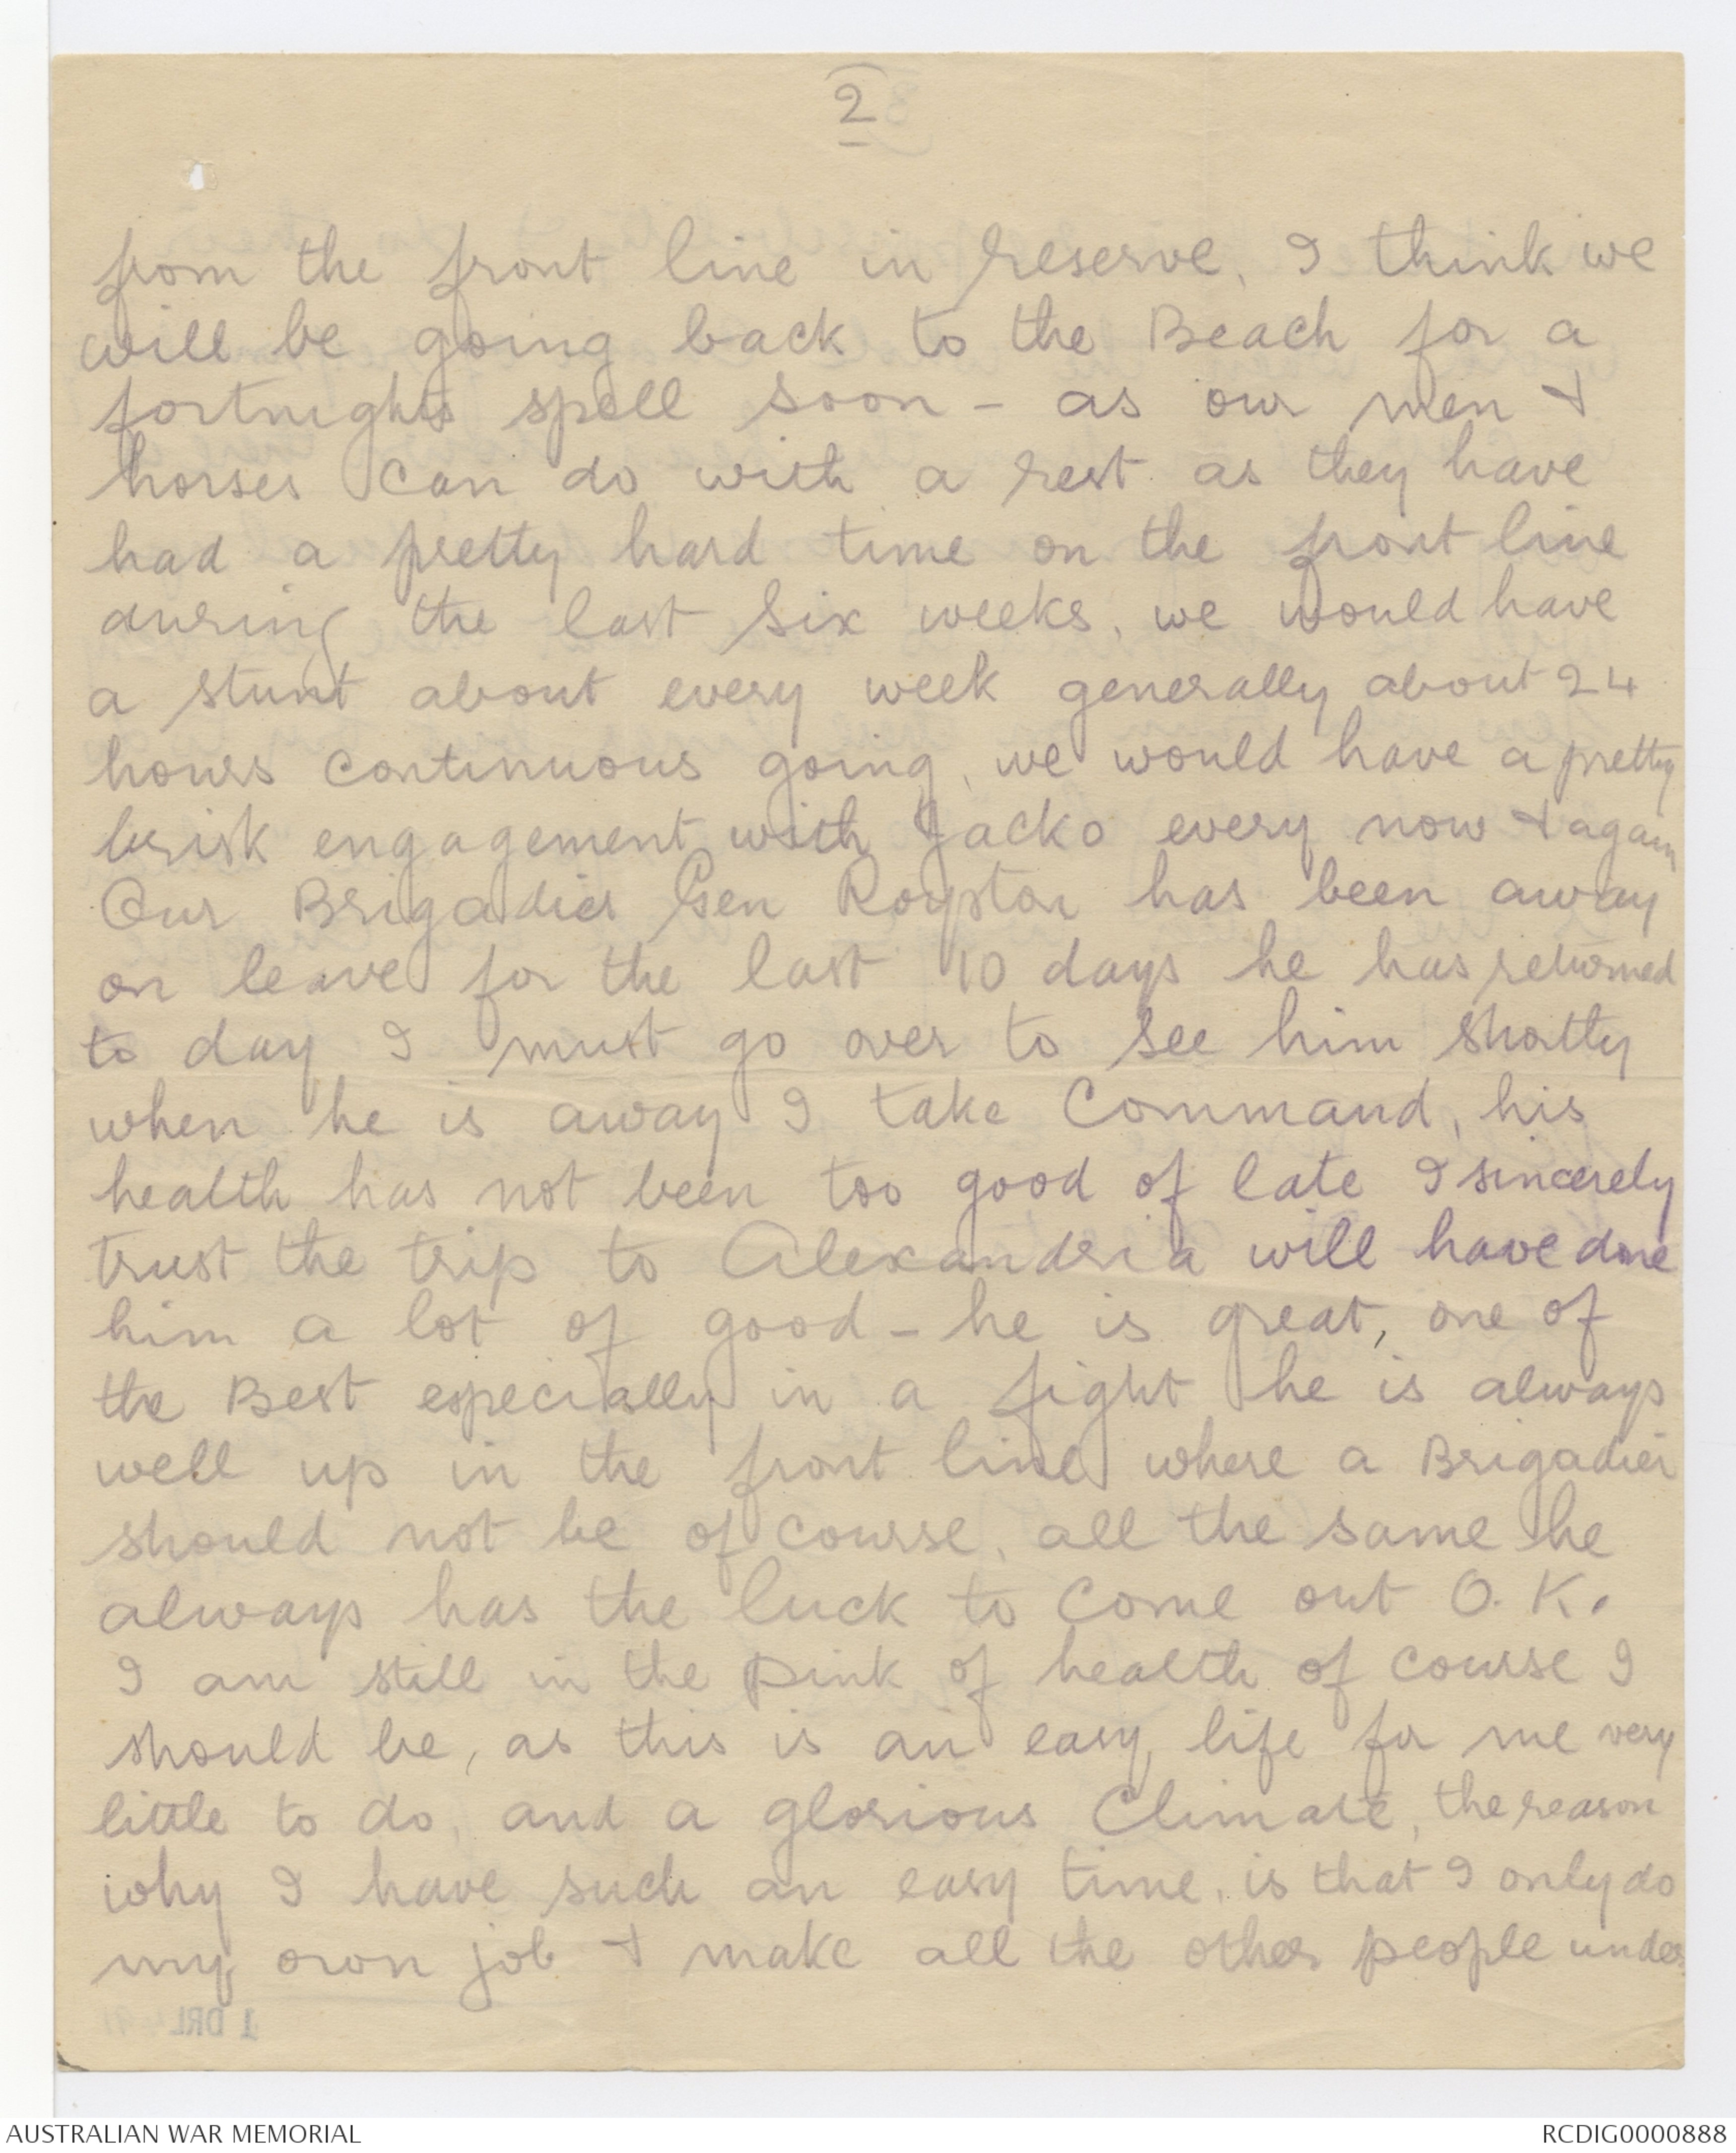 2
from the front line in reserve, I think we
will be going back to the Beach for a
fortnights spell soon - as our men &
horses can do with a rest as they have
had a pretty hard time on the front line
during the last six weeks, we would have
a stunt about every week generally about 24
hours continuous going, we would have a pretty
brisk engagement with Jacko every now & again
Our Brigadier Gen Royston has been away
on leave for the last 10 days he has returned
to day I must go over to see him shortly
when he is away I take Command, his
health has not been too good of late I sincerely
trust the trip to Alexandria will have done
him a lot of good - he is great, one of
the Best especially in a fight he is always
well up in the front line where a Brigadier
should not be of course, all the same he
always has the luck to come out O.K.
I am still in the pink of health of course I
should be, as this is an easy life for me very
little to do, and a glorious Climate, the reason
why I have such an easy time, is that I only do
my own job & make all the other people under
1 DRL
AUSTRALIAN WAR MEMORIAL
RCDIG0000888